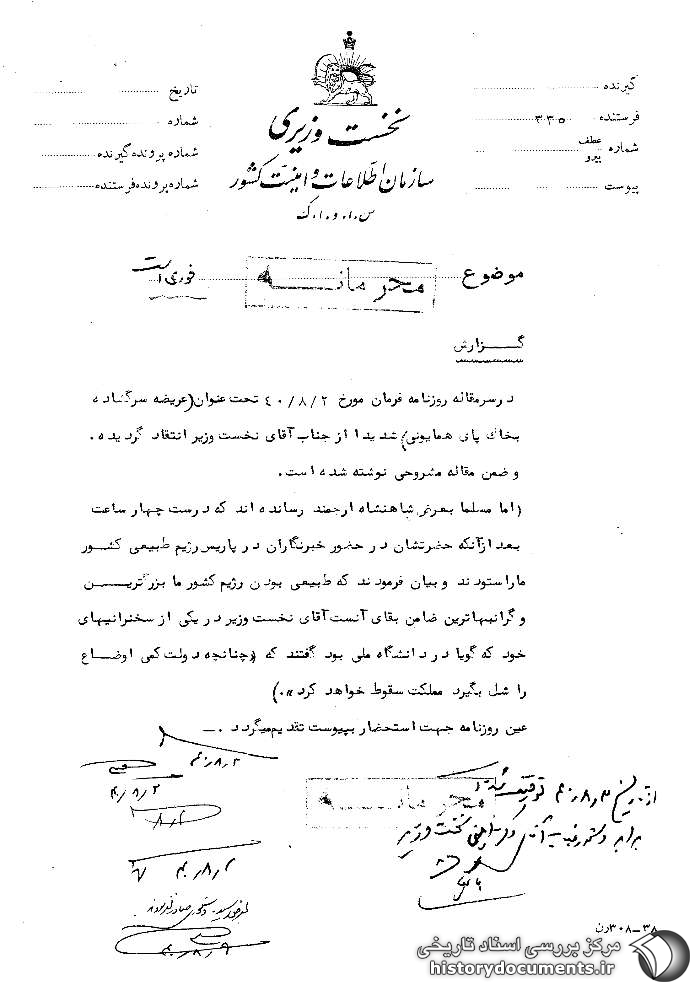 نخست وزیری
سازمان اطلاعات و امنیت کشور
س.ا.و.ا.ک
گیرنده
فرستنده ۳۳۵
شماره عطف پیرو
پیوست
تاریخ
شماره
شماره پرونده گیرنده
شماره پرونده فرستنده
موضوع
محرمانه
فوری است
گزارش
در سرمقاله روزنامه فرمان مورخ ۴۰/۸/۲ تحت عنوان (عریضه سرگشاده
بخاک پای همایونی) شدیدا از جناب آقای نخست وزیر انتقاد گردیده .
و ضمن مقاله مشروحی نوشته شده است .
(اما مسلما بعرض شاهنشاه ارجمند رسانده اند که درست چهار ساعت
بعد ازآنکه حضرتشان در حضور خبرنگاران در پاریس رژیم طبیعی کشور
ما را ستودند و بیان فرمودند که طبیعی بودن رژیم کشور ما بزرگترین
و گرانبهاترین ضامن بقای آنست آقای نخست وزیر در یکی از سخنرانیهای
خود که گویا در دانشگاه ملی بود گفتند که (چنانچه دولت کمی اوضاع
را شل بگیرد مملکت سقوط خواهد کرد» .)
عین روزنامه جهت استحضار بپیوست تقدیم میگردد .
محرمانه
از تاریخ ۴۰/۸/۳ توقیف شد
نخست وزیر
۴۰/۸/۲
۴۰/۸/۲
۴۰/۸/۹
۳۸-۳۰۸ رن
مرکز بررسی اسناد تاریخی
historydocuments.ir